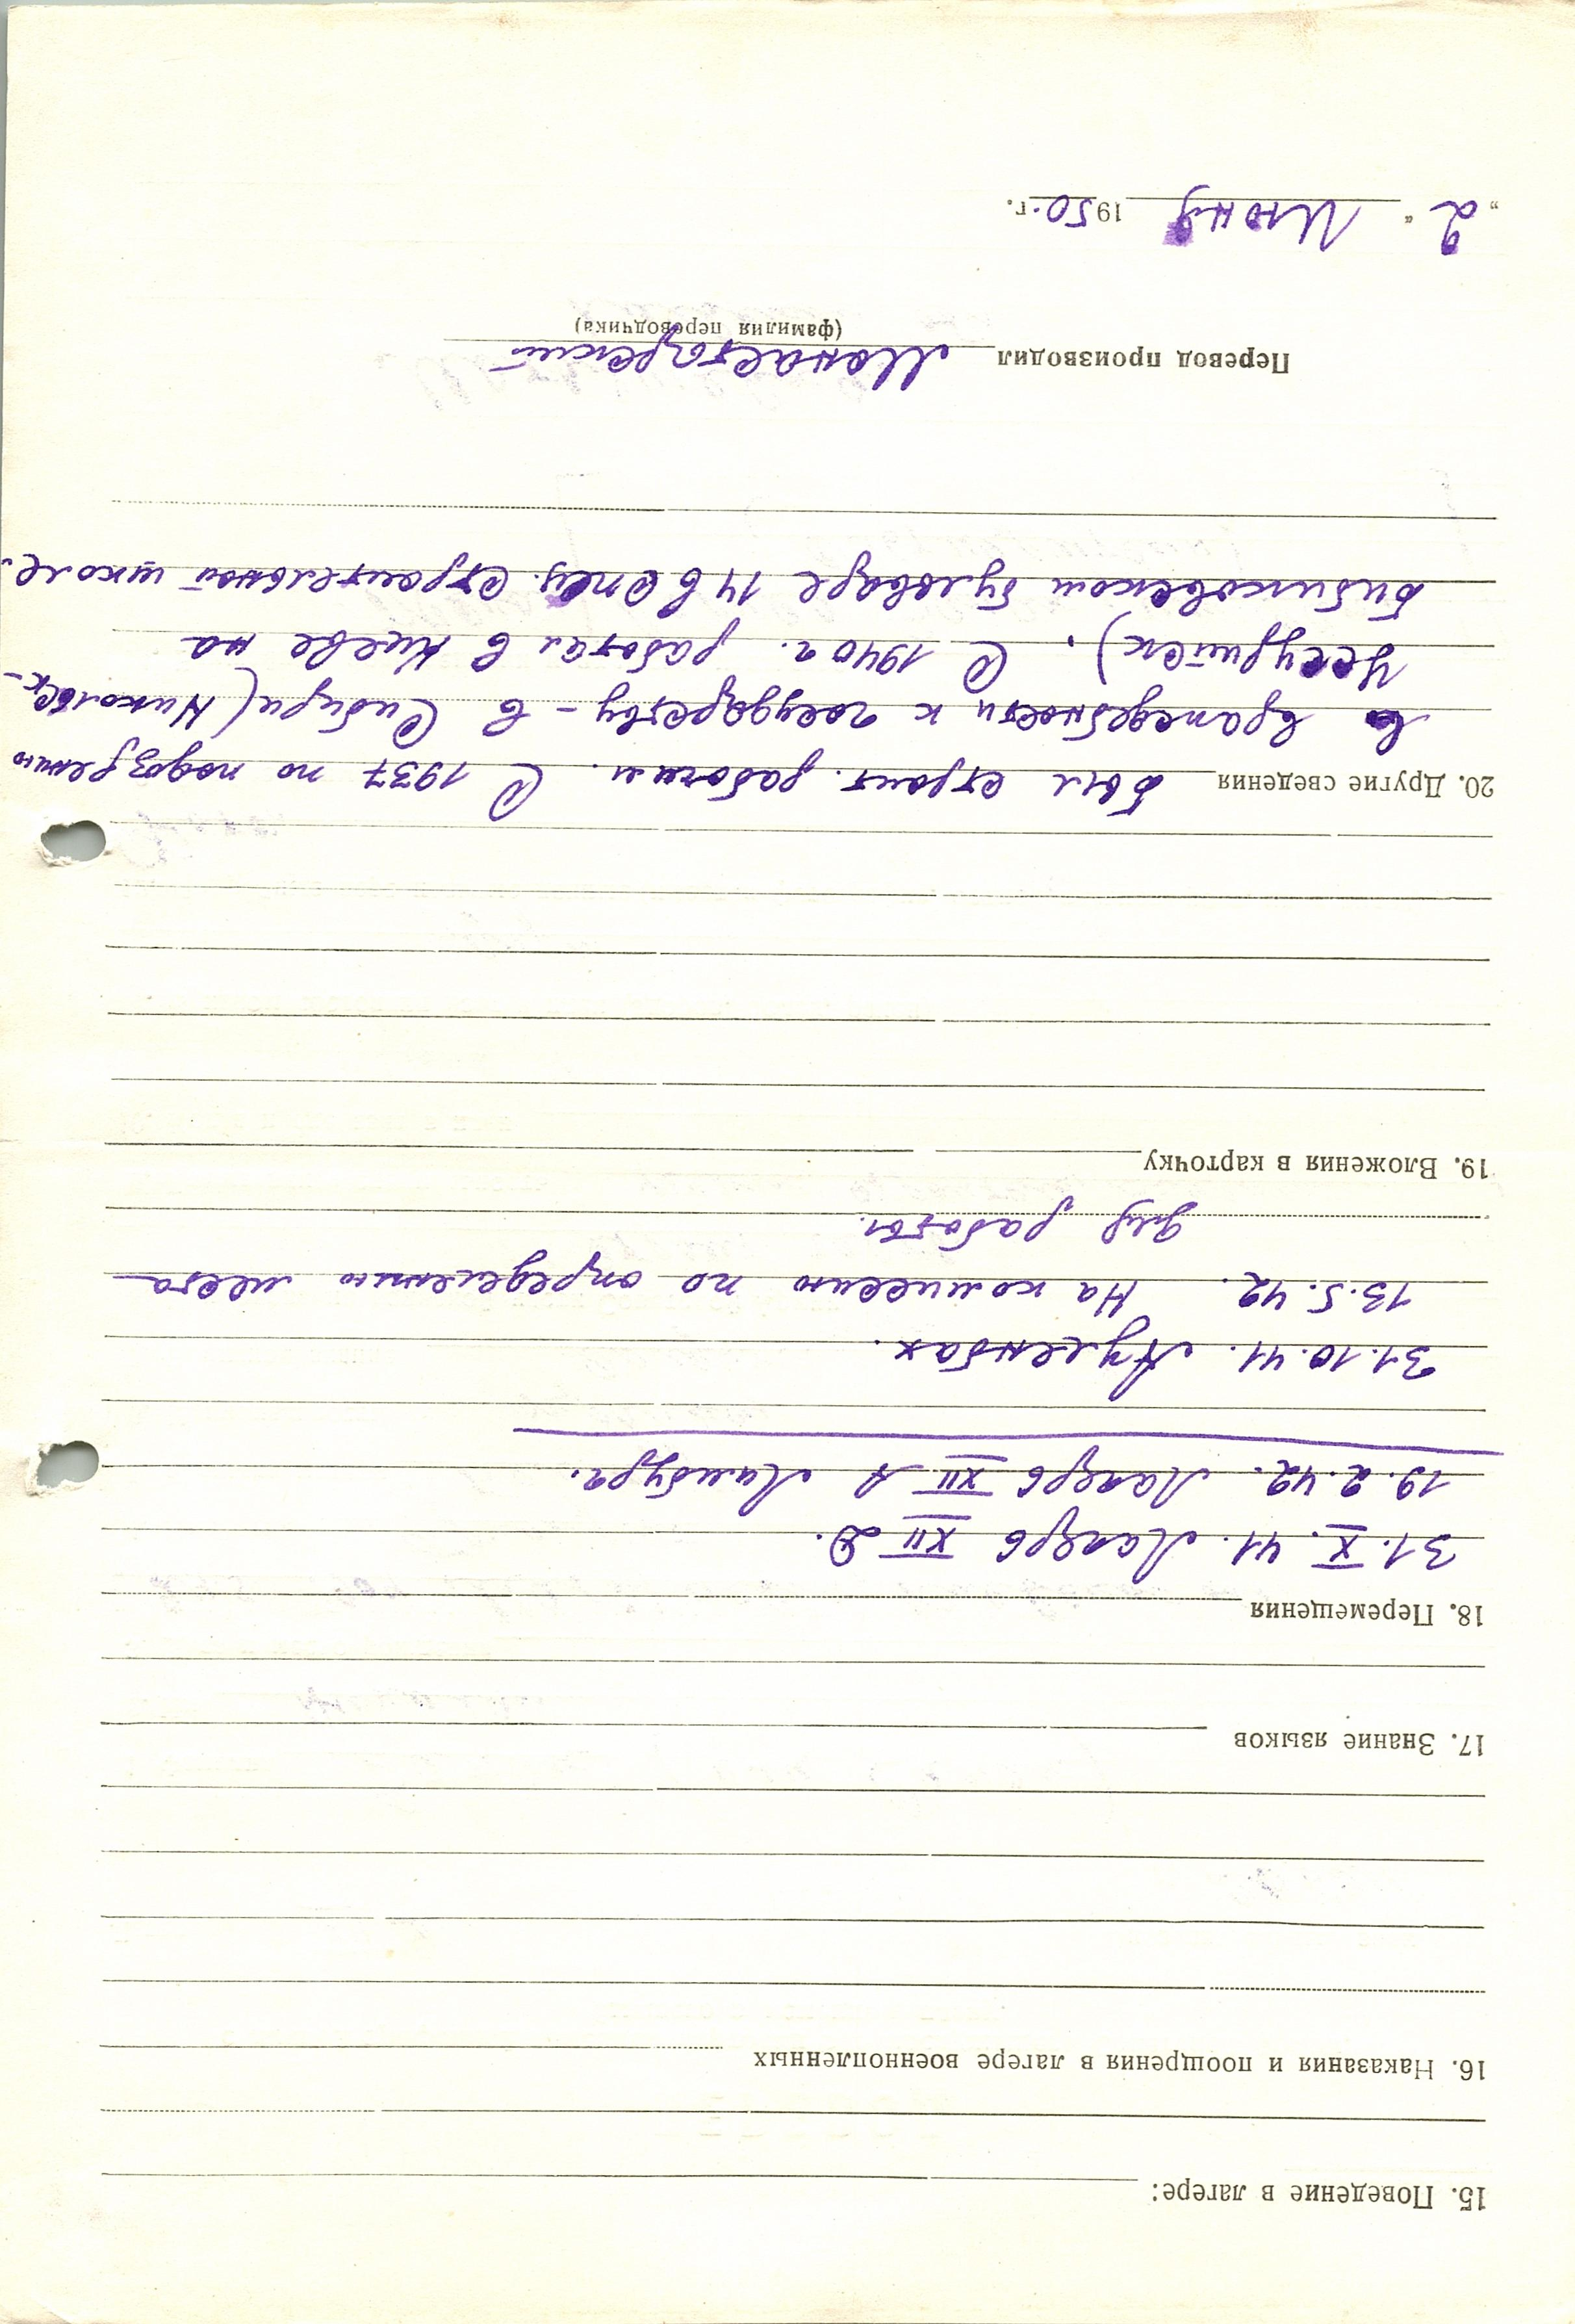 15. Поведение в лагере:
16. Наказания и поощрения в лагере военнопленных
17. Знание языков
18. Перемещения
31. X. 41. Лагерь XII D.
19. 2. 42. Лагерь XII A Лимбург.
31. 10. 41. Ауленбах.
13. 5. 42. На комиссию по определению места
для работы.
19. Вложения в карточку
20. Другие сведения Был строит. рабочим. С 1937 по подозрению
в враждебности к государству – в Сибири (Никольск-
Уссурийск). С 1940 г. работал в Киеве на
Бибиковском бульваре 14 в спец. строительной школе.
Перевод производил Монастырский
(фамилия переводчика)
„2“ Июня 1950 г.